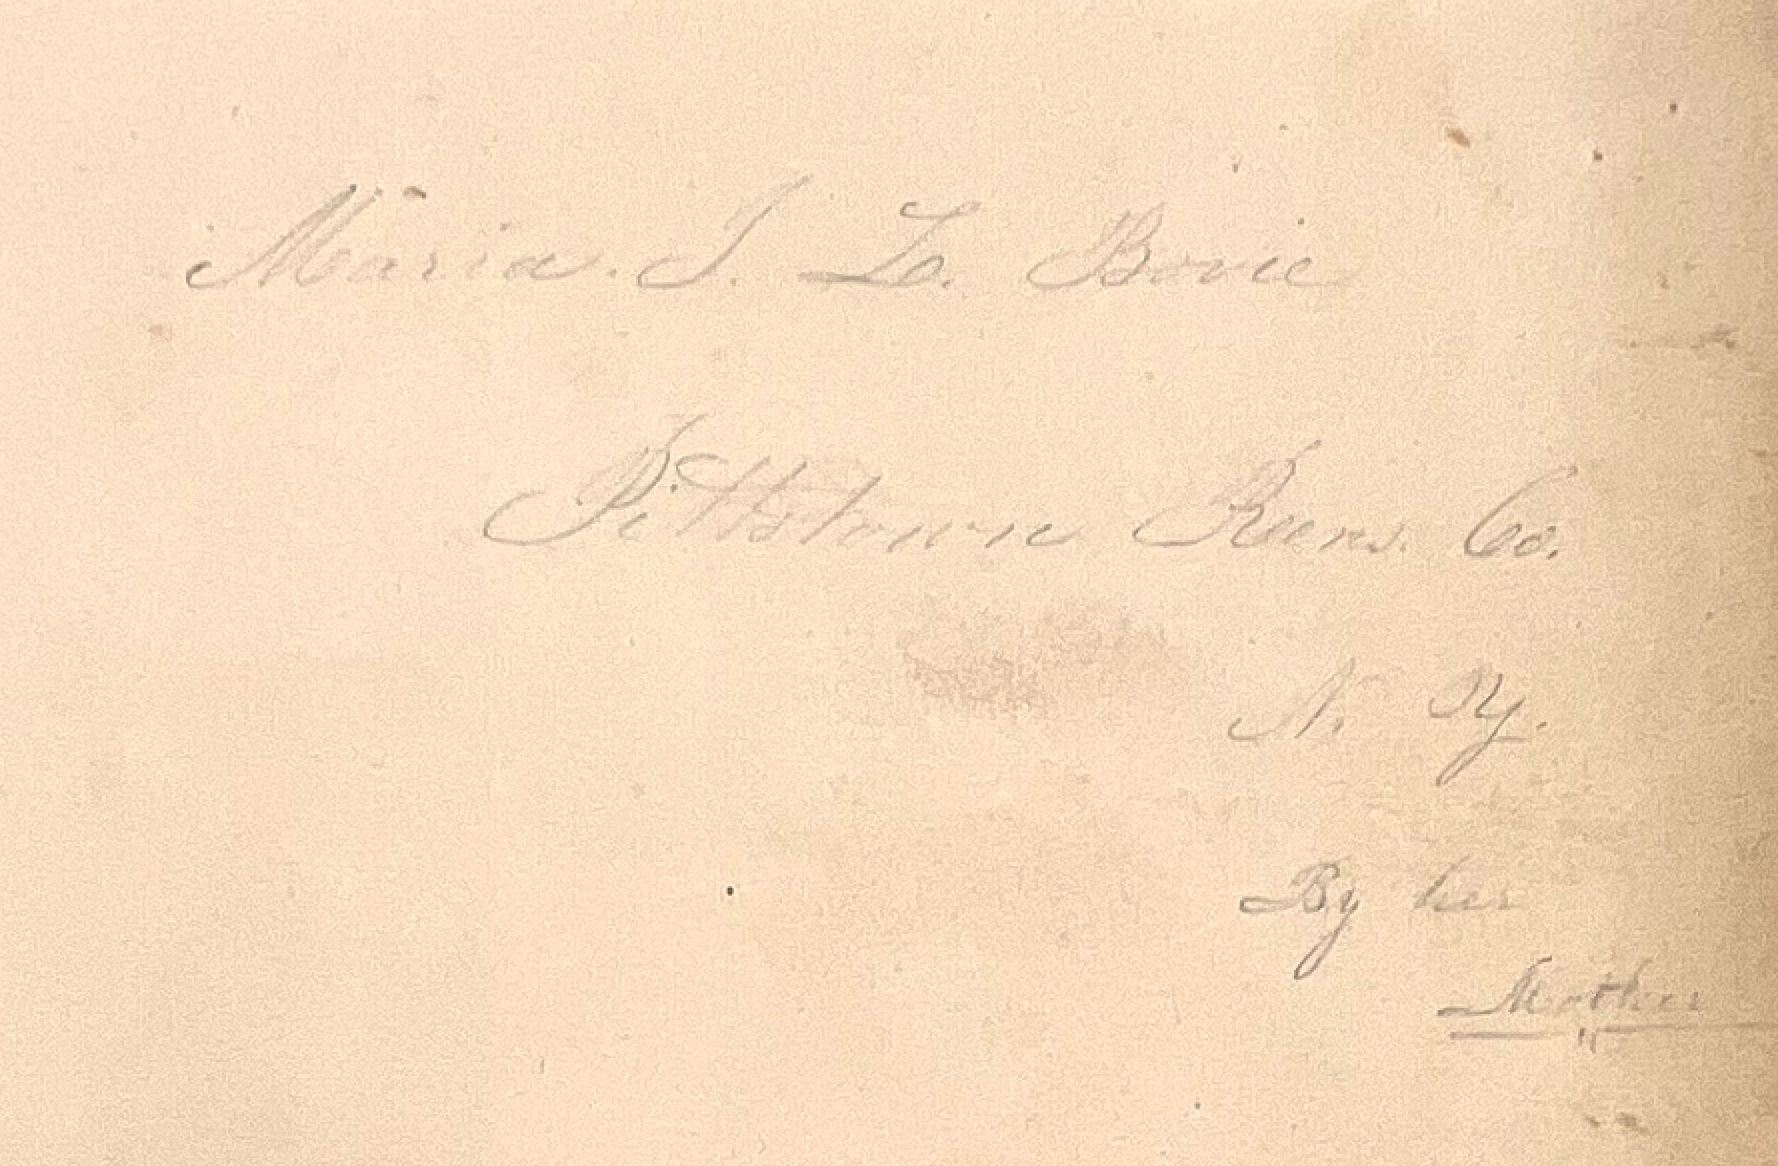 Maria. I. L. Bovie
Pittstown Rens. Co.
N. Y.
By her
Mother